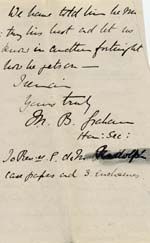 We have told him he must
try his best and let us
know in another fortnight
how he gets on -
I remain
Yours truly
M. B. Graham
Hon: Sec:
To Rev
case papers and 3. enclosures